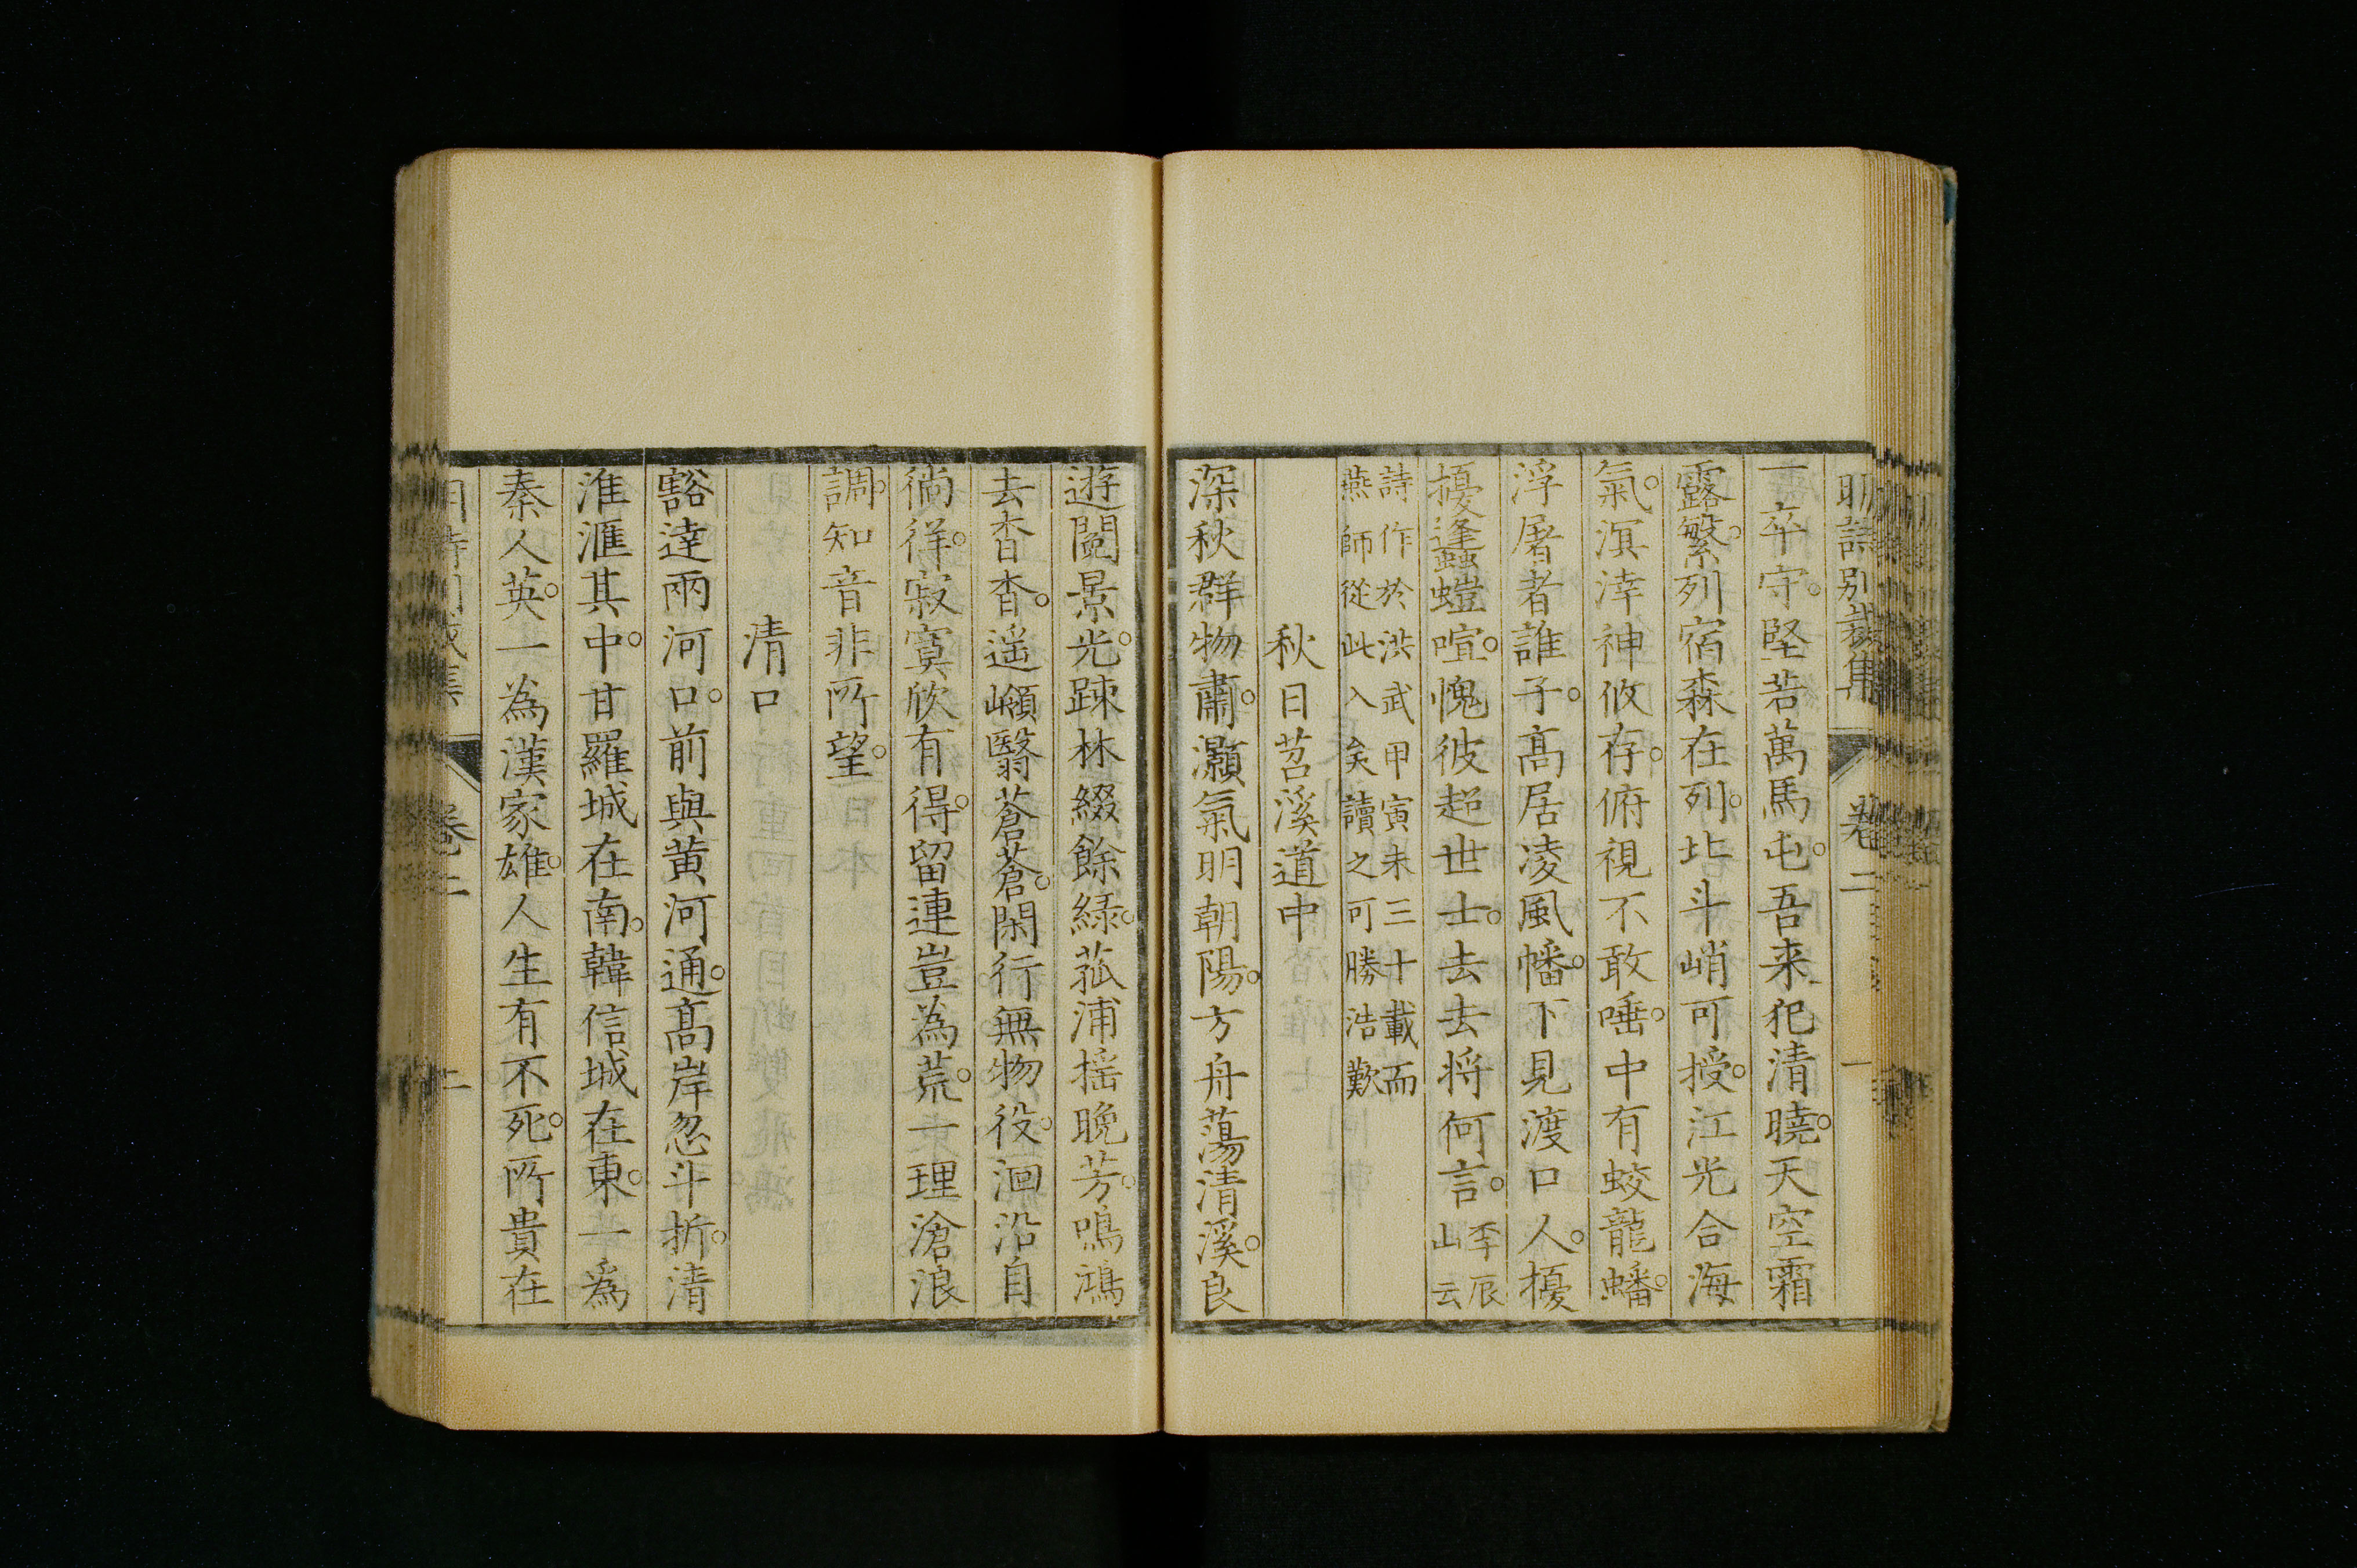 明詩別裁集 卷二 一
一卒守。堅若萬馬屯。吾来犯清曉。天空霜
露繁。列宿森在列。北斗峭可授。江光合海
氣。溟涬神攸存。俯視不敢唾。中有蛟龍蟠。
浮屠者誰子。高居凌風幡。下見渡口人。擾
擾逢蠶螘喧。愧彼超世士。去去将何言。李辰
山云
詩作於洪武甲寅未三十載而
燕師從此入矣讀之可勝浩歎
秋日苕溪道中
深秋群物肅。灝氣明朝陽。方舟蕩清溪。良
遊閱景光。踈林綴餘綠。菰浦揺晚芳。鳴鴻
去杳杳。遥巘翳蒼蒼。閑行無物役。洄沿自
徜徉。寂寞欣有得。留連豈為荒。一理滄浪
調。知音非所望。
清口
豁達兩河口。前與黄河通。高岸忽斗折。清
淮滙其中。甘羅城在南。韓信城在東。一爲
秦人英。一為漢家雄。人生有不死。所貴在
卷二 二